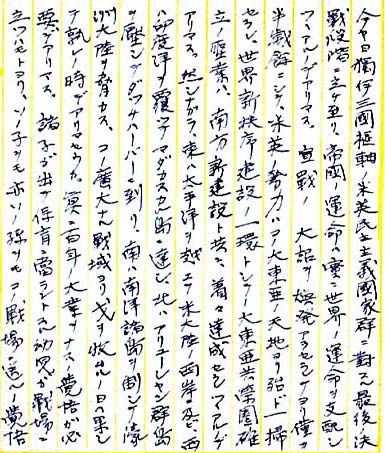 今ヤ日獨伊三國枢軸ノ米英民主主義國家群ニ対スル最後決
戦段階ニ立チ至リ帝國ノ運命ハ実ニ世界ノ運命ヲ支配シ
ツヽアルノデアリマス。宣戦ノ大詔ヲ煥発アラセラレテヨリ僅カ
半歳餘ニシテ、米英ノ勢力ハコノ大東亜ノ天地ヨリ殆ド一掃
セラレ、世界新秩序建設ノ一環トシテノ大東亜共榮圏確
立ノ聖業ハ、南方新建設ト共ニ、着々達成セレツヽアルノデ
アリマス。然シナガラ、東ハ太平洋ヲ越エテ米大陸ノ西岸及ビ、西
ハ印度洋ヲ覆ッテマダガスカル島ニ達シ、北ハアリューシャン群島
ヲ壓シテダッチハーバーニ到リ、南ハ南洋諸島ヲ制シテ濠
洲大陸ヲ脅カス、コノ廣大ナル戦域ヨリ戈ヲ收ムル日ハ果シ
テ訊レノ時デアリマセウカ。実ニ百年ノ大業ヲナス覚悟が必
要デアリマス。諸子ガ出デヽ保育ニ當ラントスル幼児ガ戦場ニ
立ツハモトヨリ、ソノ子ヲモ亦ソノ孫ヲモコノ戦場ニ送ル覚悟